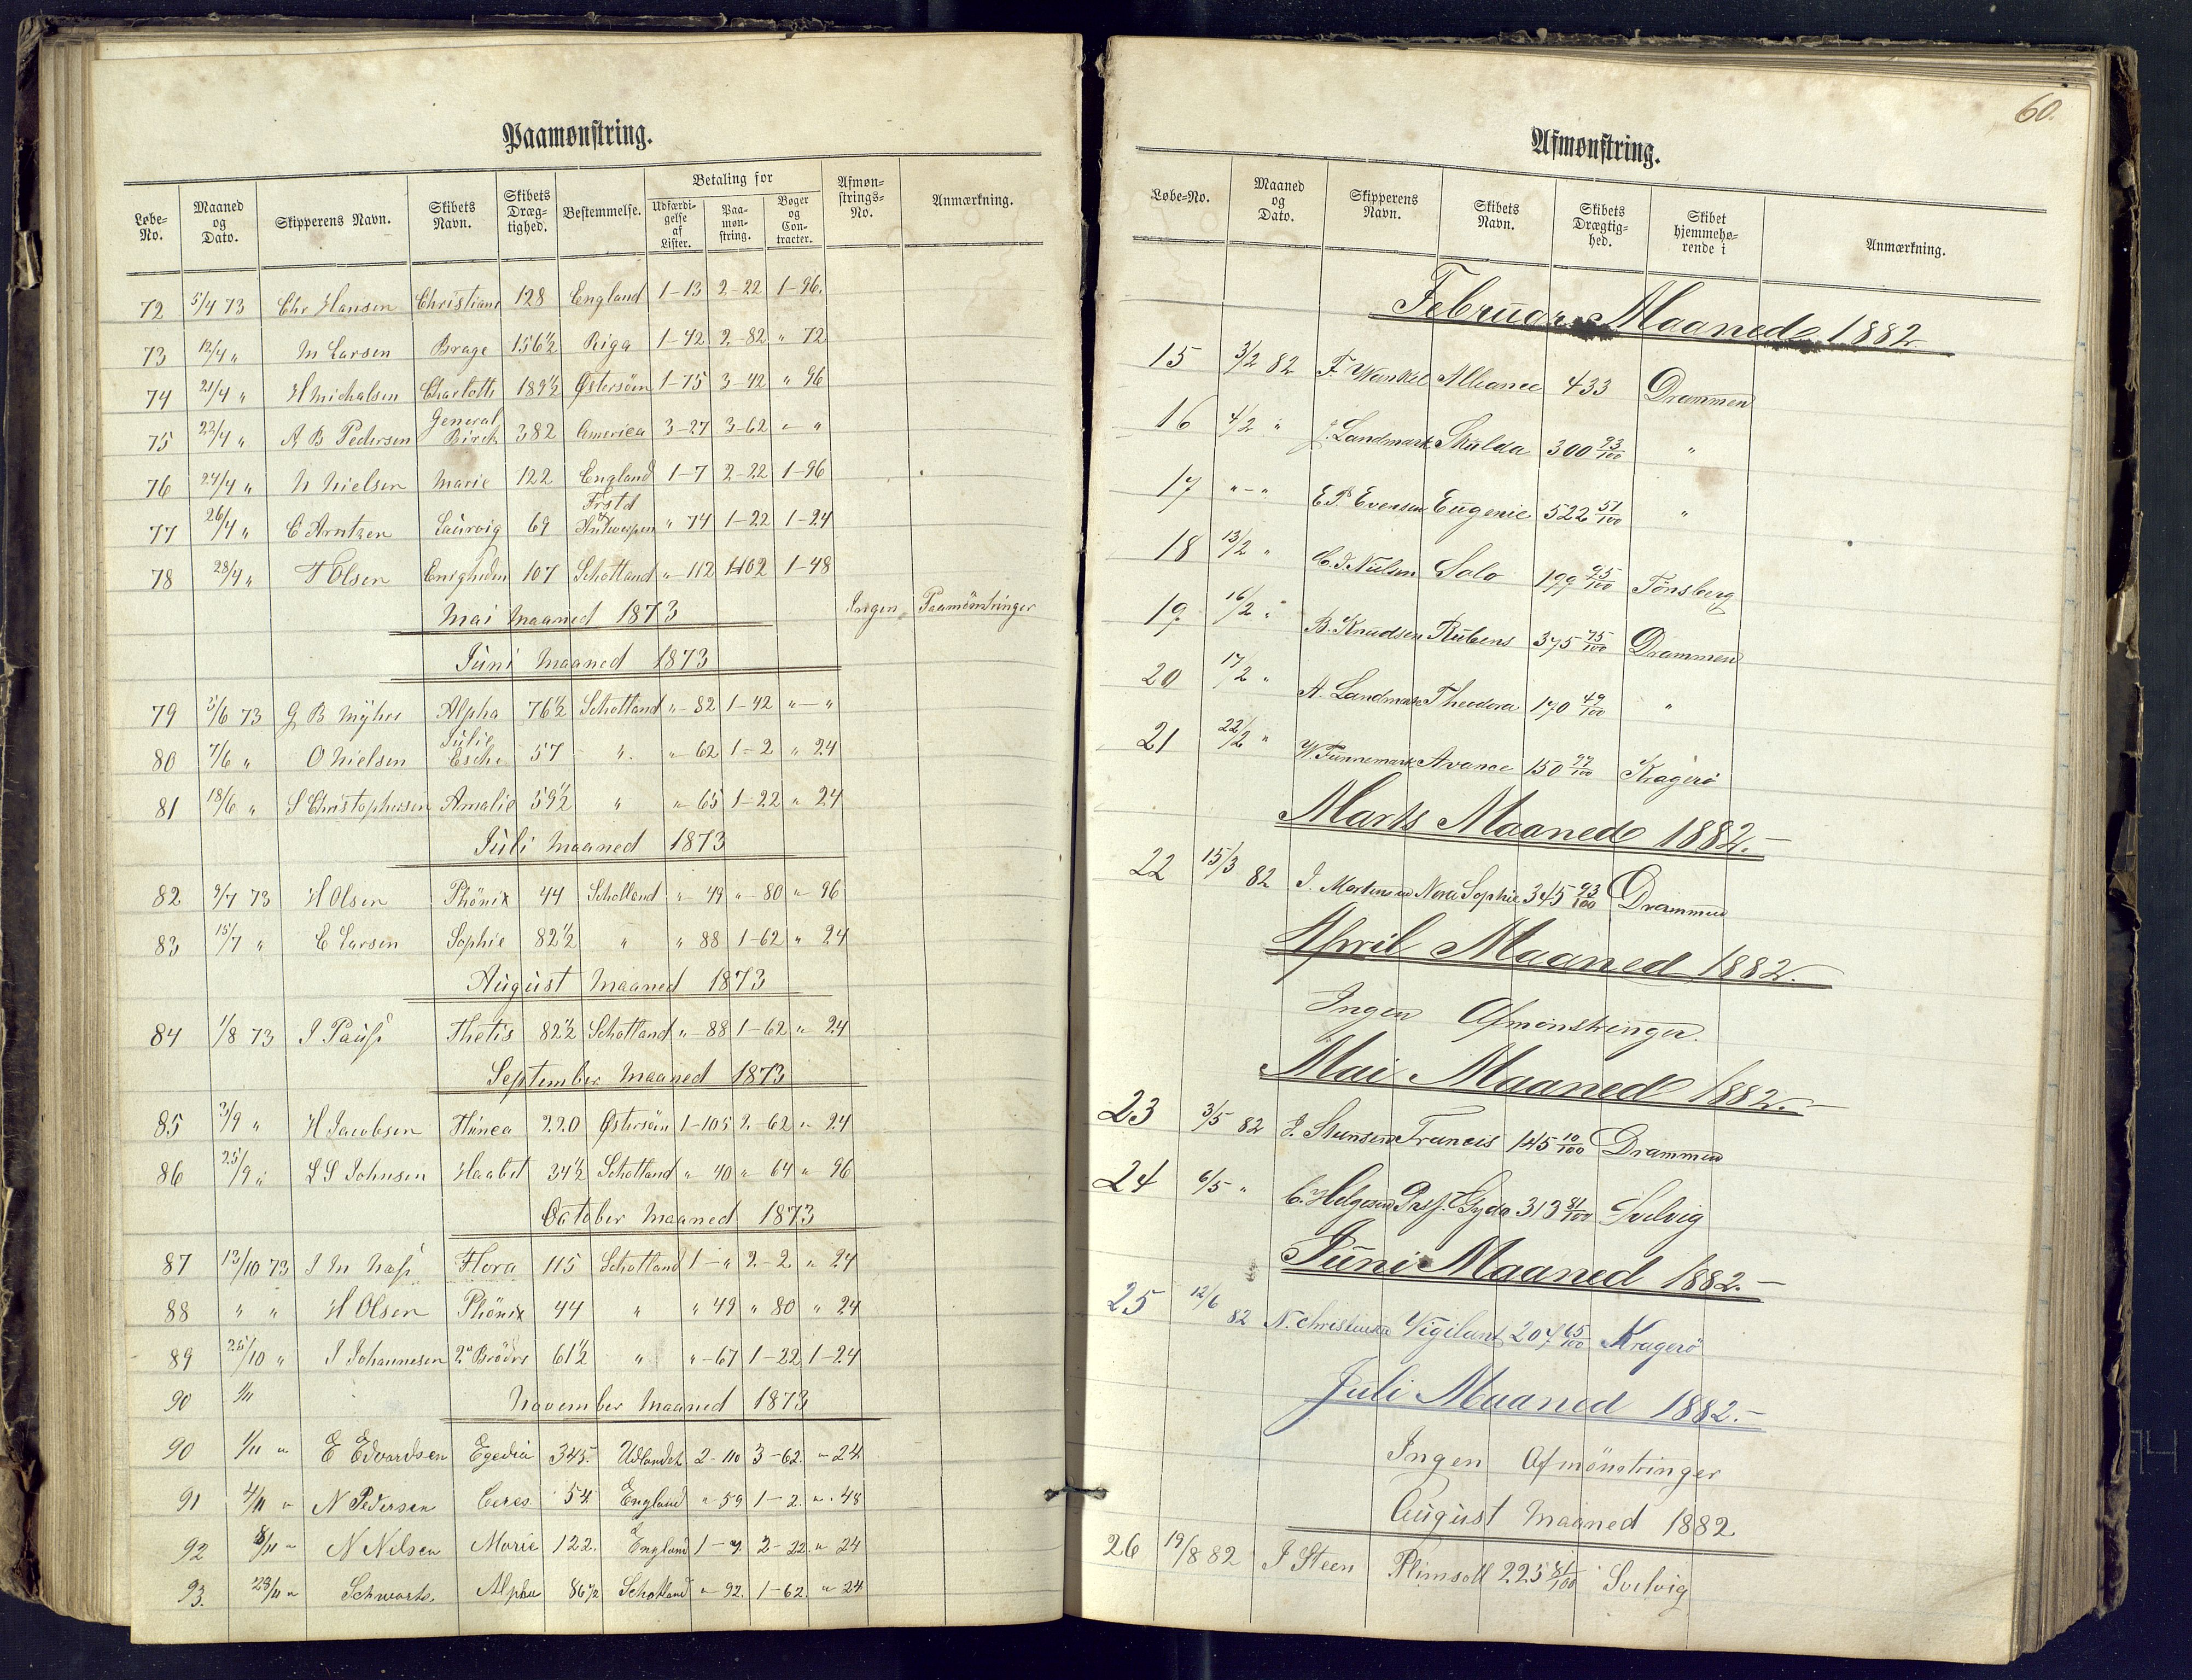 Paamønstring.
Løbe-No. | Maaned og Dato. | Skipperens Navn. | Skibets Navn. | Skibets Dræg-tighed. | Bestemmelse. | Betaling for | Udfærdi-gelse af Lister. | Paa-møn-string. | Bøger og Con-tracter. | Afmøn-strings-No. | Anmærkning.
72 5/4 73 Chr Hansen Christiane 128 England 1-13 2-22 1-96.
73 12/4 " M Larsen Brage 156 1/2 Riga 1-42 2-82 " 72
74 21/4 " H Michalsen Charlotte 189 1/2 Østersöen 1-75 3-42 " 96
75 22/4 " A B Pedersen General Birch 382 America 3-27 3-62 " "
76 24/4 " N Nielsen Marie 122 England 1-7 2-22 1-96
77 26/4 " C Arntzen Laurvig 69 Frstd Antwerpen " 74 1-22 1-24
78 28/4 " F Olsen Enigheden 107 Schottland "-112 1-102 1-48
Mai Maaned 1873 Ingen Paamönstringer
Juni Maaned 1873
79 5/6 73 G B Myhre Alpha 76 1/2 Schottland "-82 1-42 "-"
80 7/6 " O Nielsen Julie Esche 57 " " 62 1-2 " 24
81 18/6 " S Christophersen Amalie 59 1/2 " " 65 1-22 " 24
Juli Maaned 1873
82 9/7 73 H Olsen Phönix 44 Schottland "-49 "-80 " 96
83 15/7 " C Larsen Sophie 82 1/2 " " 88 1-62 " 24
August Maaned 1873
84 1/8 73 I Thetis 82 1/2 Schottland "-88 1-62 " 24
September Maaned 1873
85 3/9 " H Jacobsen 220 Østersöen 1-105 2-62 " 24
86 25/9 " L S Johnsen Haabet 34 1/2 Schottland " 40 " 64 " 96
October Maaned 1873
87 13/10 73 I M Flora 115 Schottland 1-" 2-2 " 24
88 " " H Olsen Phönix 44 " " 49 " 80 " 24
89 25/10 " I Johannesen 2de Brödre 61 1/2 " "-67 1-22 1-24
90 1/11 November Maaned 1873
90 1/11 " E Edvardsen Egedia 345. Udlandet 2-110 3-62. " 24
91 4/11 " N Pedersen Ceres. 54. England " 59 1-2. " 48
92 8/11 " N Nilsen Marie 122. England 1-7. 2-22. " 24
93. 23/11 " Schwartz. Alpha 86 1/2 Schotland " 92. 1-62. " 24
60.
Afmønstring.
Løbe-No. | Maaned og Dato. | Skipperens Navn. | Skibets Navn. | Skibets Drægtig-hed. | Skibet hjemmehø-rende i | Anmærkning.
Februar Maaned 1882
15 3/2 82 F. Wankel Alliance 433 Drammen
16 4/2 " J. Landmark Skulda 300 93/100 "
17 "-" E. P. Evensen Eugenie 522 51/100 "
18 13/2 " C. J. Nielsen Solo 199 95/100 Tönsberg
19 16/2 " B. Knudsen Rubens 375 75/100 Drammen
20 17/2 " A. Landmark Theodora 170 49/100 "
21 22/2 " W. Tünnemark Avance 150 97/100 Kragerö
Marts Maaned 1882.-
22 15/3 82 I. Mortensen Nora Sophie 345 93/100 Drammen
April Maaned 1882.
Ingen Afmönstringer.
Mai Maaned 1882.-
23 3/5 82 Francis 145 10/100 Drammen
24 6/5 " C. Helgesen Prss. Gyda 313 81/100 Svelvig
Juni Maaned 1882.-
25 12/6 82 N. Christensen Vigilant 207 65/100 Kragerö
Juli Maaned 1882.-
Ingen Afmönstringer
August Maaned 1882
26 19/8 82 I Steen Plimsoll 225 81/100 Svelvig